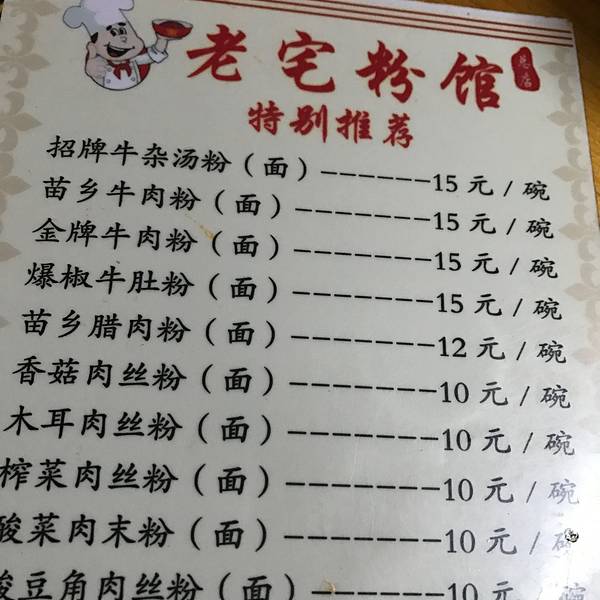 老宅粉馆 总店
特别推荐
招牌牛杂汤粉（面）------15元/碗
苗乡牛肉粉（面）-------15元/碗
金牌牛肉粉（面）-------15元/碗
爆椒牛肚粉（面）-------15元/碗
苗乡腊肉粉（面）-------12元/碗
香菇肉丝粉（面）-------10元/碗
木耳肉丝粉（面）-------10元/碗
榨菜肉丝粉（面）-------10元/碗
酸菜肉末粉（面）-------10元/碗
酸豆角肉丝粉（面）------10元/碗